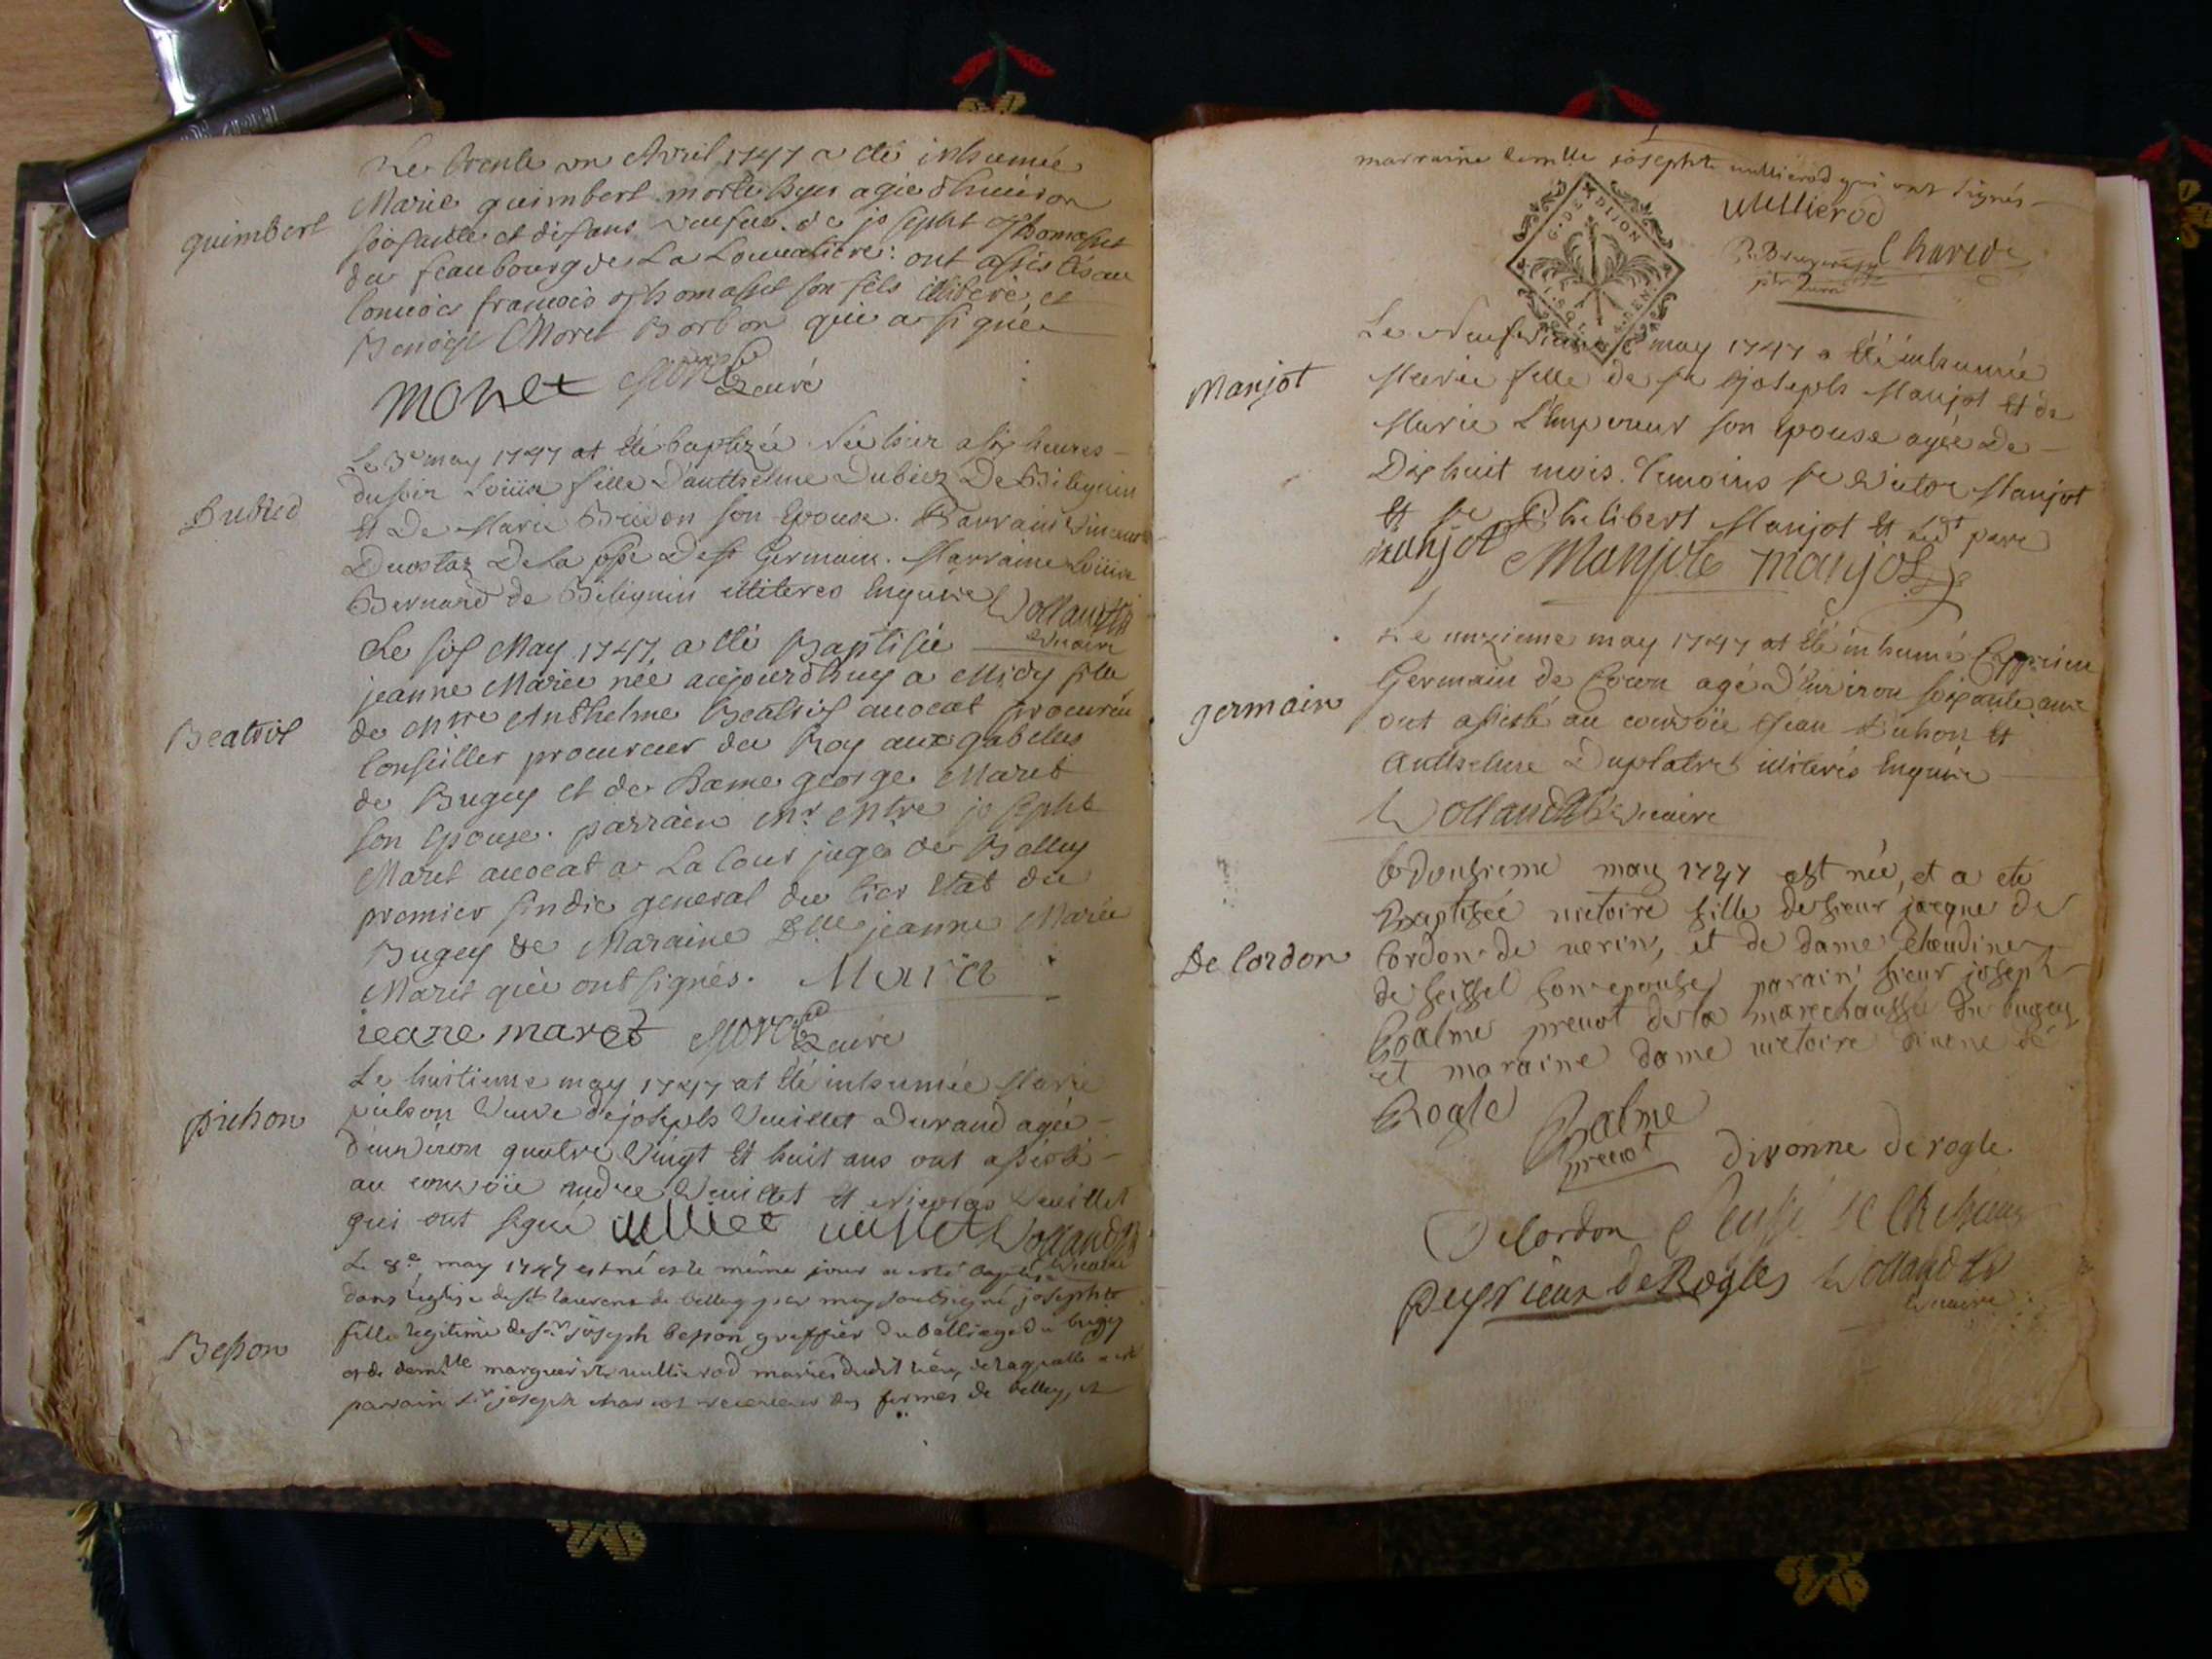 Le trente un Avril 1747 a eté inhumée
guimbert
Marie guimbert morte hyer agée d'huiron
soixante et dix ans veufue de joseph thomasset
du feaubourg de La Louuatiere: ont assistés au
conuoix francois thomasset son fils illiteré et
Benoist Moret Borbon qui a signé
monet Moret curé
Le 3e may 1747 at été baptizée Née hier a six heures
Dubied
du soir Loüise fille D'anthelme Dubiez De Bilignin
Et De Marie son Epouse. Parrain Vincent
De La psse De st Germain. Marraine Loüise
Bernard de Bilignin illiteres Enquis Volland
Vicaire
Le six May 1747, a eté Baptisée
jeanne Marie née aujourdhuy a Midy fille
Beatrix
de Mtre Anthelme Beatrix auocat procureur
Conseiller procureur du Roy aux gabelles
de Bugey et de Dame george Maret
son Epouse. parrain Mr Mtre joseph
Maret auocat a La Cour juge de Belley
premier sindic general du tier Etat du
Bugey & Maraine Dlle jeanne Marie
Maret qui ont signés. Maret
jeane maret Moret curé
Le huitieme may 1747 at été inhumée Marie
pichon
pichon Veuve de joseph Veuillet Durand agée
d'environ quatre Vingt Et huit ans ont assisté
au convoïe andre Veuillet Et Nicolas Veuillet
qui ont signé vulliet vulliet Volland
Vicaire
Le 8e may 1747 est né et le même jour a esté baptisée
dans l'eglise de st laurent de belley par moy soussigné josephte
Besson
fille legitime de sr joseph besson greffier du balliage du bugey
et de demlle marguerite vullierod mariés dudit lieu, de laquelle a esté
parrain sr joseph charcot receveur des fermes de belley, et
marraine demlle josephte vullierod qui ont signés
vullierod
G. DE DIJON
Le Neufvieme may 1747 a été inhumée
Manjot
Marie fille de sr joseph Manjot Et de
Marie L'Empereur son Epouse agée De
Dix huit mois. Temoins sr Victor Manjot
Et sr Philibert Manjot Et Ledt pere
manjot Manjot manjot
Le unzieme may 1747 at été inhumé
germain
Germain de agé D'Environ soixante ans
ont assisté au convoïe Jean Pichon Et
Anthelme Duplatre illiterés Enquis
Volland Vicaire
le douzieme may 1747 est née, et a ete
Baptisée victoire fille de sieur jacque de
De Cordon
Cordon de verin, et de dame claudine
de seissel son epouse parain sieur joseph
Balme prevot de la marechaussée du bugey
et maraine dame victoire divone de
Rogle
Balme
prevot
divonne de rogle
Decordon
peyrieux de Rogles Volland
Vicaire